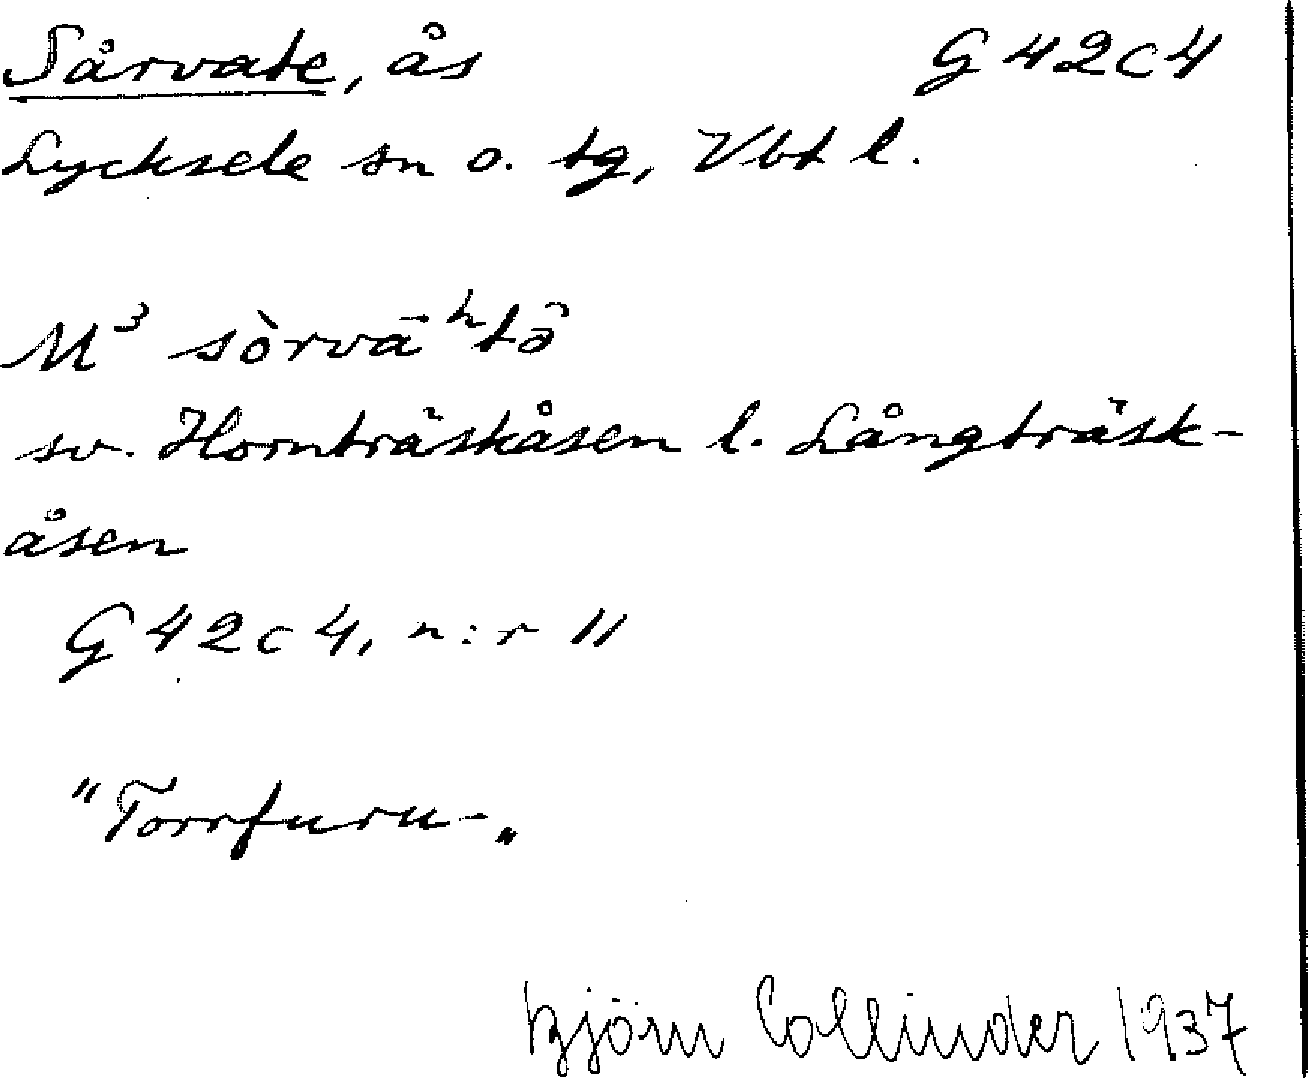 Sårvate, ås G42c4
Lycksele sn o. tg, Vbt l.
M³ sòrvāʰtə̑
sv. Hornträskåsen l. Långträsk-
åsen
G42c4, n:r 11
"Torrfuru-"
Björn Collinder 1937